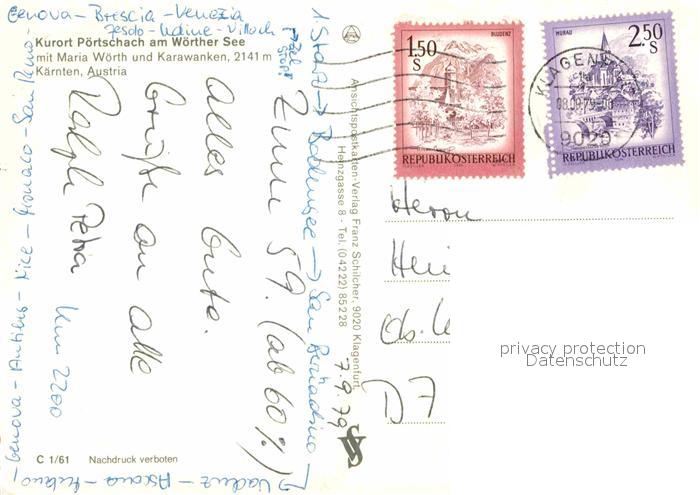 Genova - Brescia - Venezia
Jesolo - Udine - Villach
Kurort Pörtschach am Wörther See
mit Maria Wörth und Karawanken, 2141 m
Kärnten, Austria
1. Start → Bodensee → San Bernadino →
Vaduz - Ascona - Milano -
Genova - Antibes - Nice - Monaco - San Remo -
Zum 59. (ab 60%)
alles Gute.
Grüße an alle
Ralph Petra
km 2200
7.9.79
C 1/61 Nachdruck verboten
Ansichtspostkarten-Verlag Franz Schilcher, 9020 Klagenfurt,
Heinzgasse 8 - Tel. (04222) 85228
1.50 S
BLUDENZ
REPUBLIK ÖSTERREICH
2.50 S
MURAU
REPUBLIK ÖSTERREICH
KLAGENF
08.09.79
9020
Herrn
Hei
D7
privacy protection
Datenschutz